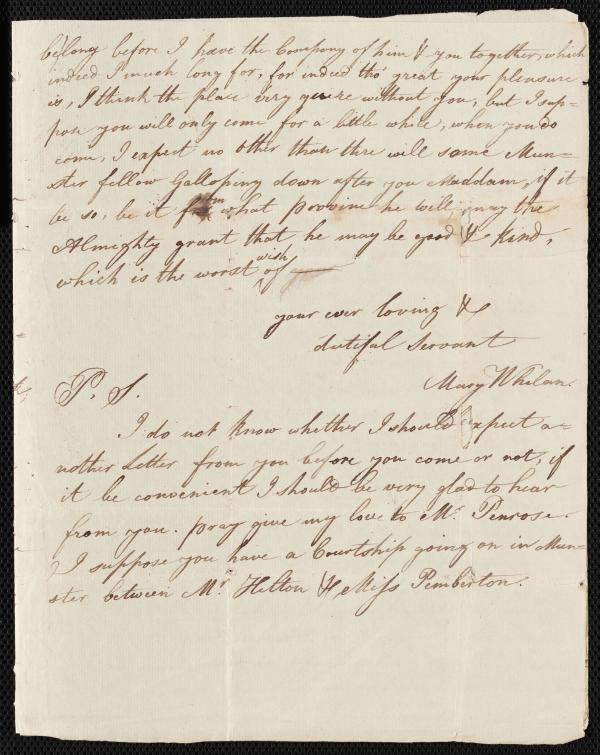 be long before I have the Company of him & you together, which
indeed I much long for, for indeed tho' great your pleasure
is, I think the place very quere without you, but I sup=
pose you will only come for a little while, when you do
come, I expect no other than thre will some Mun=
ster fellow Galloping down after you Maddam, if it
be so, be it from what provine he will, may the
Almighty grant that he may be good & kind,
which is the worst wish of
your ever loving &
dutiful Servant
Mary Whelan.
P. S.
I do not know whether I should expect a=
nother Letter from you before you come or not, if
it be convenient I should be very glad to hear
from you. pray give my love to Mr. Penrose.
I suppose you have a Courtship going on in Mun=
ster between Mr. Helton & Miss Pemberton.